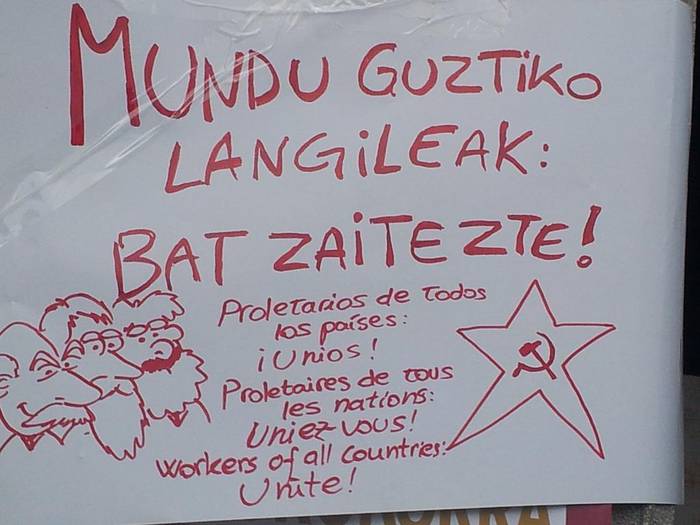 MUNDU GUZTiKO
LANGiLEAK:
BAT ZAiTEZTE!
Proletarios de todos
los países:
¡Unios!
Proletaires de tous
les nations:
Uniez-vous!
Workers of all countries:
Unite!